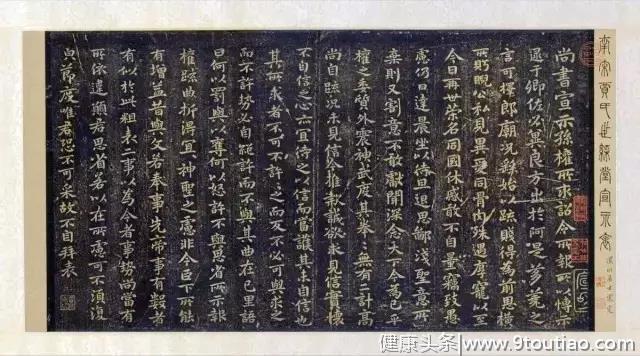 南宋賈氏世綵堂宣示表
尚書宣示孫權所求詔令所報所以博示
逮于卿佐必冀良方出於阿是芻蕘之
言可擇郎廟況繇始以疏賤得為前恩橫
所眄睨公私見異愛同骨肉殊遇厚寵以至
今日再世榮名同國休慼敢不自量竊致愚
慮仍日達晨坐以待旦退思鄙淺聖意所
棄則又割意不敢獻聞深念天下今為已平
權之委質外震神武度其拳拳無有二計高
尚自疏況未見信今推款誠欲求見信實懷
不自信之心亦宜待之以信而當護其未自信也
其所求者不可不許許之而反不必可與求之
而不許勢必自絕許而不與其曲在己里語
曰何以罰與以奪何以怒許不與思省所示報
權疏曲折得宜宜神聖之慮非今臣下所能
有增益昔與文若奉事先帝事有數者
有似於此粗表二事以為今者事勢尚當有
所依違願君思省若以在所慮可不須復
貌節度唯君恐不可采故不自拜表
健康头条 www.9toutiao.com